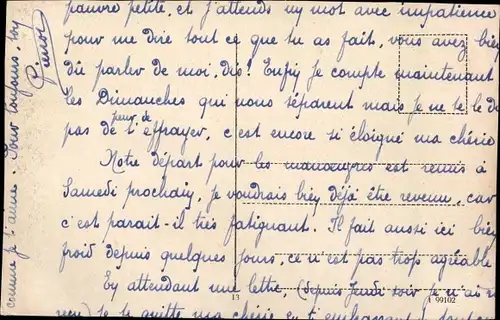 pauvre petite, et j'attends un mot avec impatience
pour me dire tout ce que tu as fait, vous avez bien
dû parler de moi, dis! Enfin je compte maintenant
les Dimanches qui nous séparent mais je ne te le dis
pas de peur de t'effrayer, c'est encore si éloigné ma chérie
Notre départ pour les manœuvres est remis à
Samedi prochain, je voudrais bien déjà être revenu, car
c'est parait-il très fatigant. Il fait aussi ici bien
froid depuis quelques jours, ce n'est pas trop agréable
En attendant une lettre, (depuis Jeudi soir je n'ai rien
reçu) je te quitte ma chérie en t'embrassant
comme je t'aime. Pour toujours, ton
Pierrot
13
99102